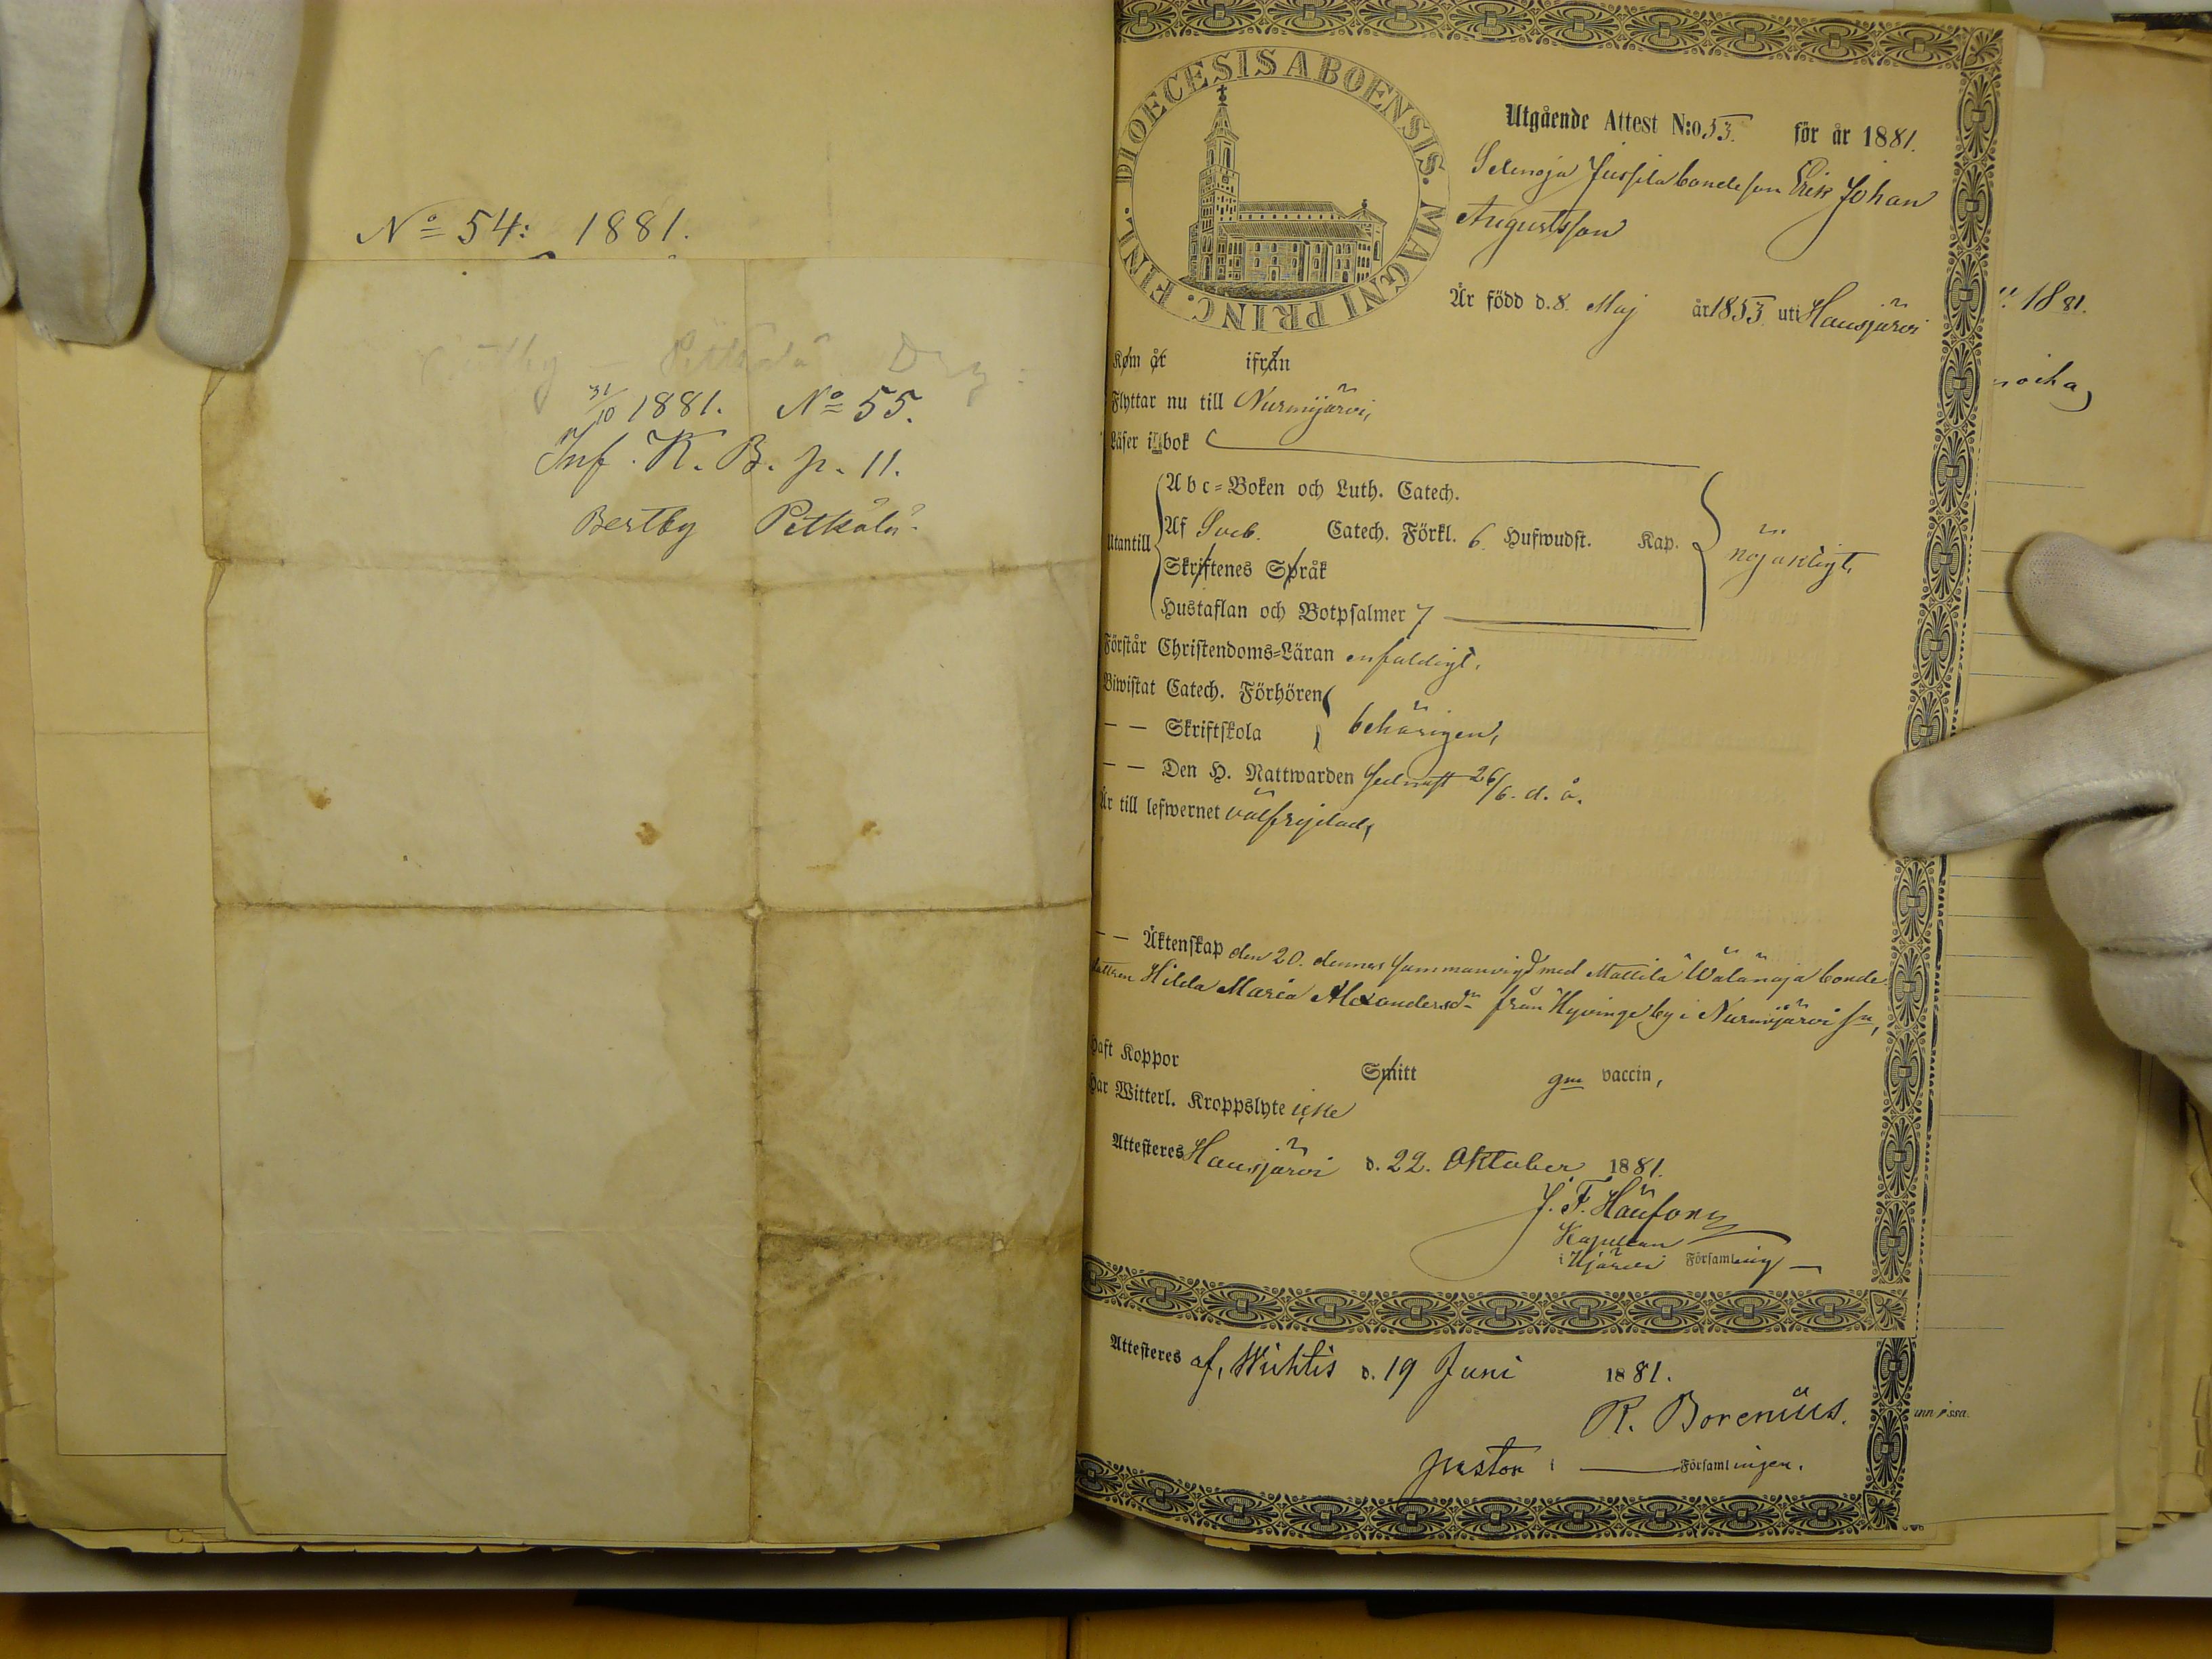 No 54: 1881.
31/10 1881. No 55.
Inf. K. B. p. 11.
Bertby Pitkälä
DIOECESIS ABOENSIS. MAGNI PRINC. FINL.
Utgående Attest N:o 53. för år 1881.
Selenoja Jussila bondeson Erik Johan
Augustsson
Är född d. 8. Maj år 1853 uti Hausjärvi
Kom år ifrån
Flyttar nu till Nurmijärvi,
Läser i bok
Abc-Boken och Luth. Catech.
Utantill Af Sveb. Catech. Förkl. 6. Hufwudst. Kap. nöjaktigt,
Skriftenes Språk
Hustaflan och Botpsalmer 7
Förstår Christendoms-Läran enfaldigt.
Biwistat Catech. Förhören
— — Skriftskola behörigen,
— — Den H. Nattwarden sednast 26/6. d. å.
Är till lefwernet välfrejdad,
— — Äktenskap den 20. dennes sammanvigd med Mattila Wälänoja bonde
dottren Hilda Maria Alexandersdr från Hyvinge by i Nurmijärvi sn,
Haft Koppor Smitt gm vaccin,
Har Witterl. Kroppslyte icke
Attesteres Hausjärvi d. 22. Oktober 1881.
J. F.
Kapellan
i Hjärvi Församling
Attesteres af, Wichtis d. 19 Juni 1881.
R. Borenius.
pastor i Församlingen.
1881.